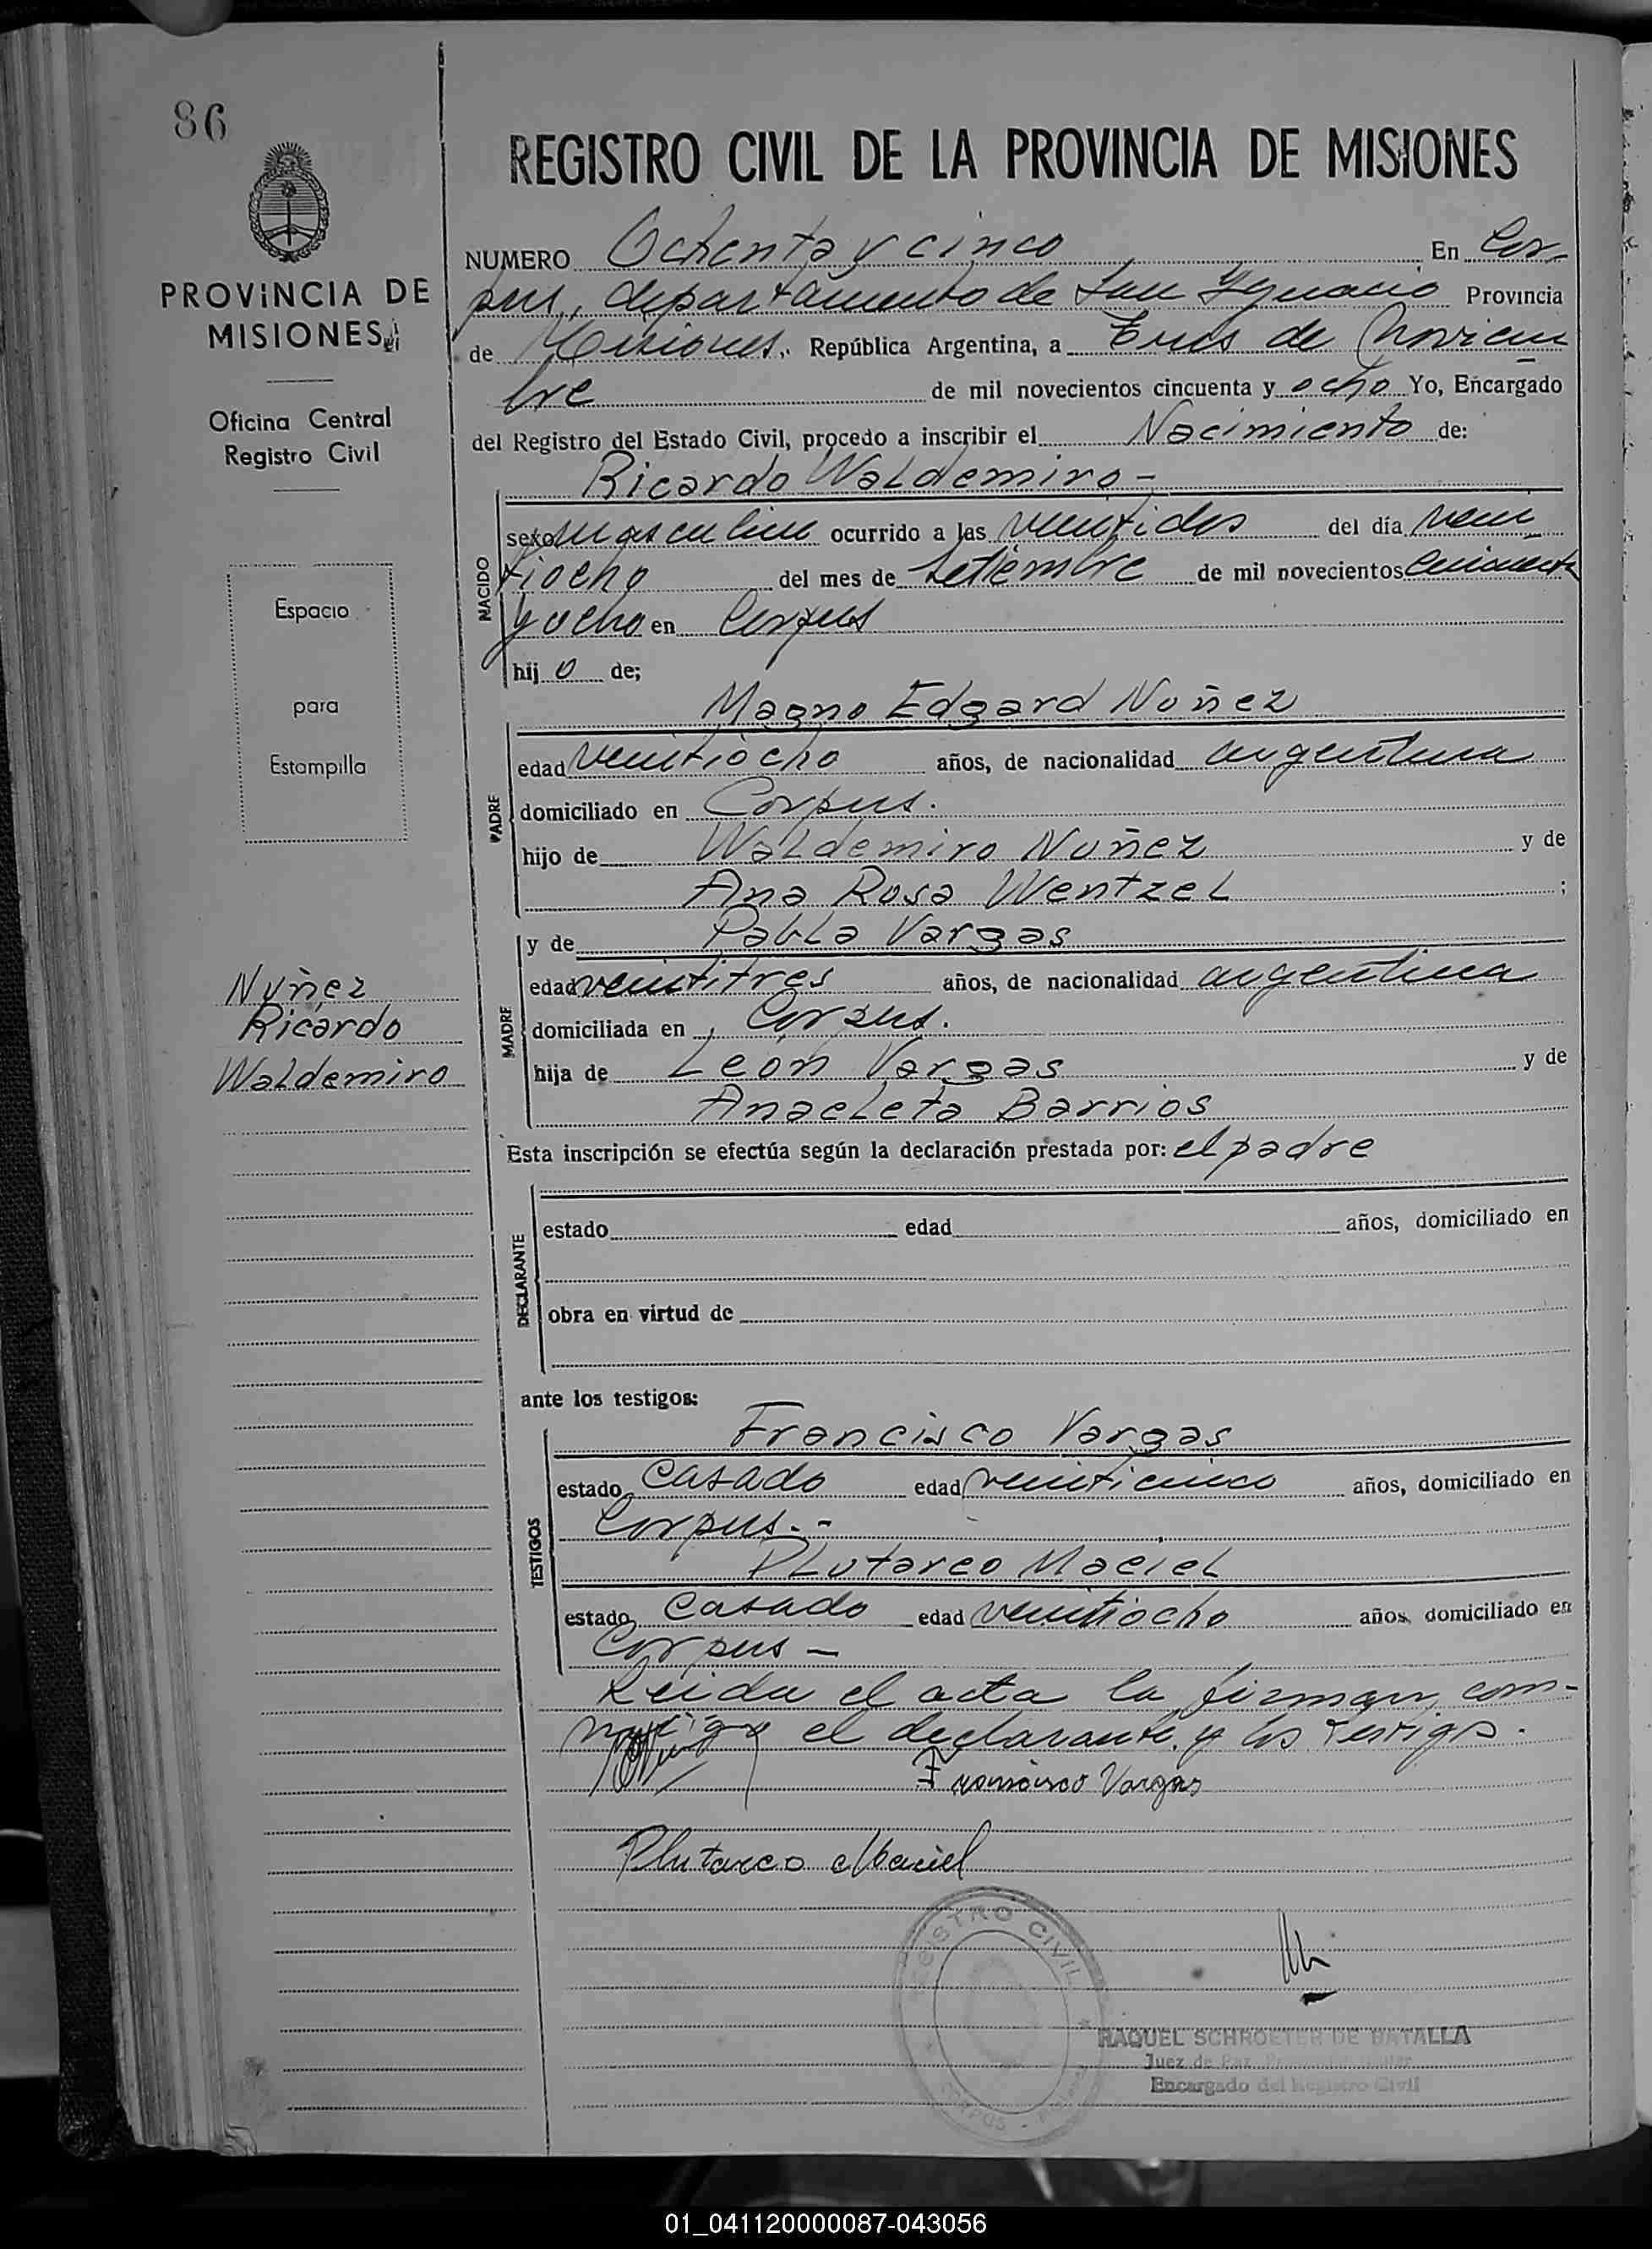 86
PROVINCIA DE
MISIONES
Oficina Central
Registro Civil
Espacio
para
Estampilla
Nuñez
Ricardo
Waldemiro
REGISTRO CIVIL DE LA PROVINCIA DE MISIONES
NUMERO Ochenta y cinco En Cor-
pus, departamento de San Ygnacio Provincia
de Misiones, República Argentina, a de Noviem
bre de mil novecientos cincuenta y ocho Yo, Encargado
del Registro del Estado Civil, procedo a inscribir el Nacimiento de:
Ricardo Waldemiro -
NACIDO
sexo masculino ocurrido a las veintidos del día vein
tiocho del mes de Setiembre de mil novecientos cincuenta
y ocho en Corpus
hij o de;
Magno Edgard Nuñez
PADRE
edad veintiocho años, de nacionalidad argentina
domiciliado en Corpus.
hijo de Waldemiro Nuñez y de
Ana Rosa Wentzel ;
y de Pabla Vargas
MADRE
edad veintitres años, de nacionalidad argentina
domiciliada en Corpus.
hija de León Vargas y de
Anacleta Barrios
Esta inscripción se efectúa según la declaración prestada por: el padre
DECLARANTE
estado edad años, domiciliado en
obra en virtud de
ante los testigos:
Francisco Vargas
TESTIGOS
estado Casado edad veinticinco años, domiciliado en
Corpus. -
Plutarco Maciel
estado Casado edad veintiocho años, domiciliado en
Corpus -
Leida el acta la firman con-
migo el declarante y los testigos.
Francisco Vargas
Plutarco Maciel
REGISTRO CIVIL
CORPUS
RAQUEL SCHROETER DE BATALLA
Juez de Paz
Encargado del Registro Civil
01_041120000087-043056